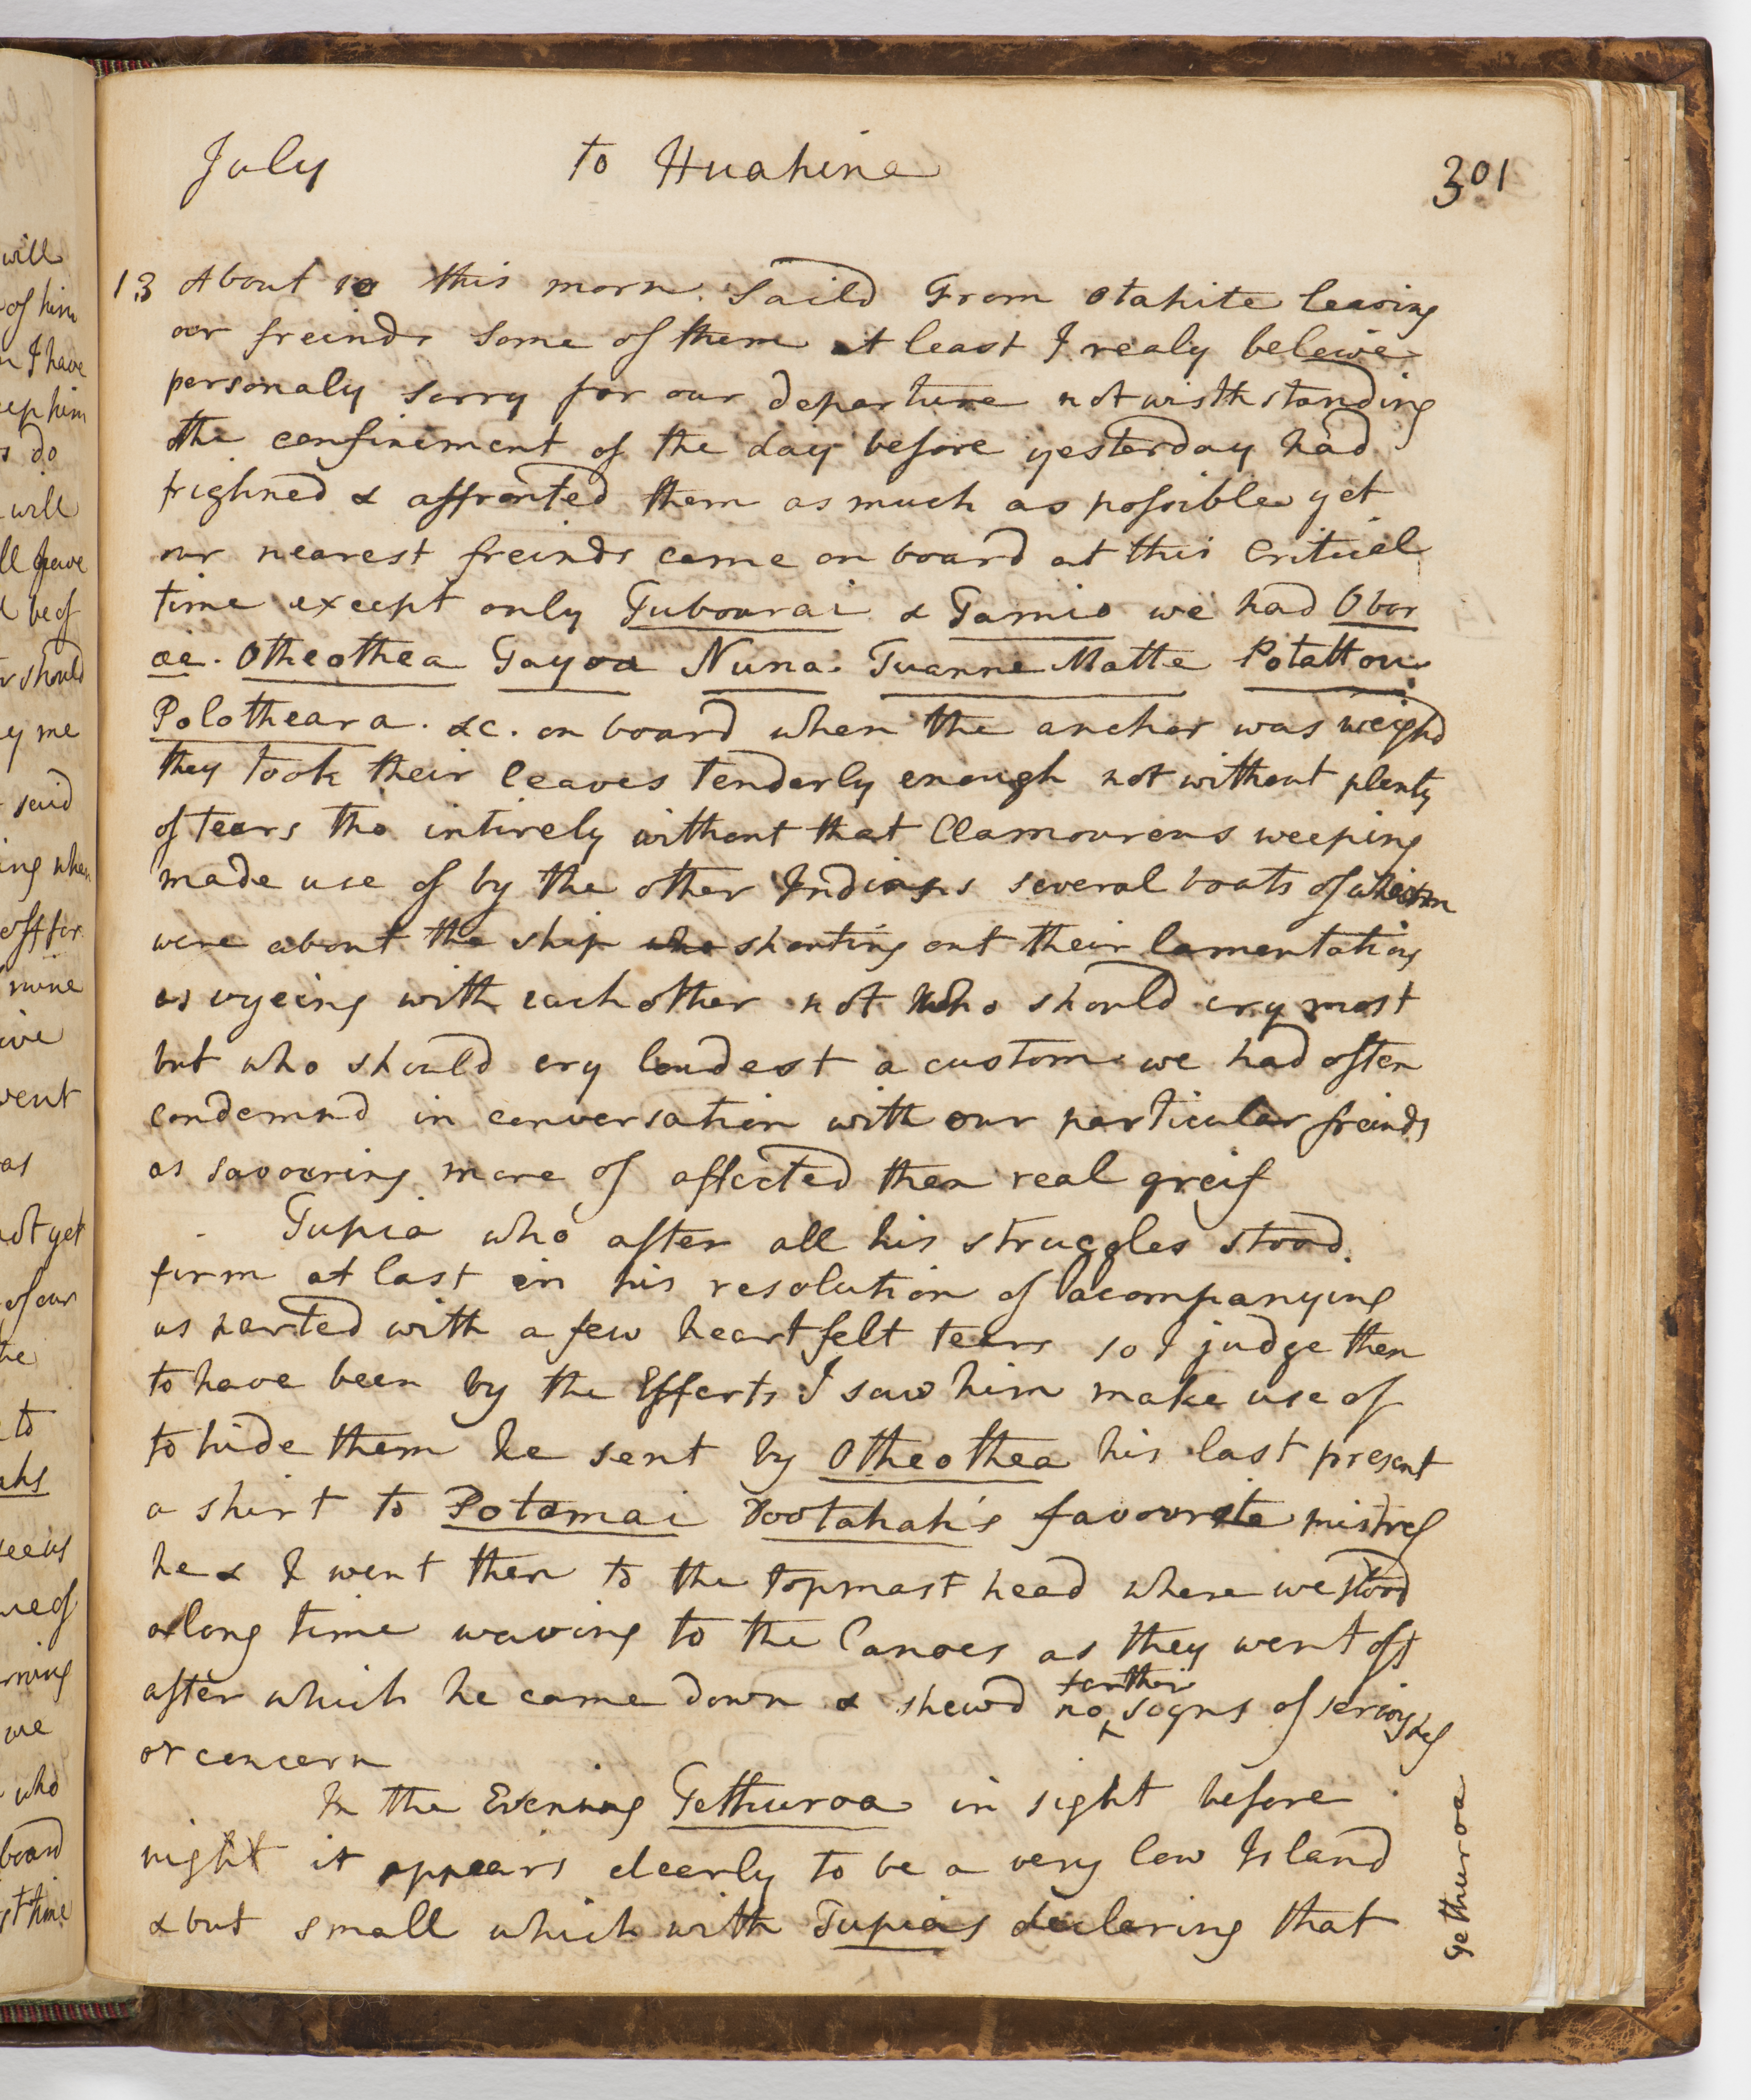 July to Huahine 301
13 About 10 this morn. Saild From Otahite leaving
our freinds Some of them at least I realy beleive
personaly sorry for our departure notwisthstanding
the confinement of the day before yesterday had
frighned & affronted them as much as possible yet
our nearest freinds came on board at this Critical
time except only Tubourai & Tamio we had Obor
ae. Otheothea Tayoa Nuna. Tuanne Matte Potattou
Polotheara. &c. on board when the anchor was weighd
they took their leaves tenderly enough not without plenty
of tears tho intirely without that Clamourous weeping
made use of by the other Indians several boats of whom
were about the ship who shouting out their lamentations
as vyeing with each other not who should cry most
but who should cry loudest a custom we had often
condemnd in conversation with our particular freinds
as savouring more of affected then real greif
Tupia who after all his struggles stood
firm at last in his resolution of acompanying
us parted with a few heartfelt tears so I judge them
to have been by the Efforts I saw him make use of
to hide them he sent by Otheothea his last present
a shirt to Potamai Tootahah's favourite mistress
he & I went then to the topmast head where we stood
a long time waving to the Canoes as they went off
after which he came down & shewd no farther signs of seriousness
or concern
In the Evening Tethuroa in sight before
night it appears cleerly to be a very low Island
& but small which with Tupias declaring that
Tethuroa
will
of him
I have
him
do
will
be of
should
me
said
ing when
off for
mine
vent
as
not yet
of our
to
we
who
board
time